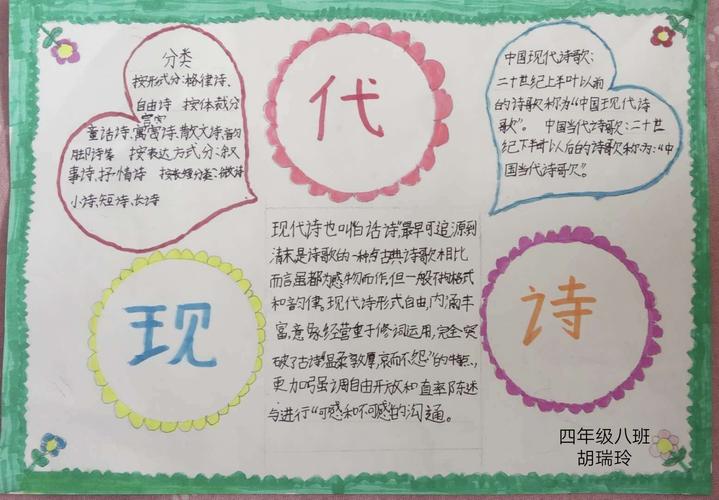 分类
按形式分:格律诗、
自由诗 按体裁分
童话诗、寓言诗、散文诗、韵
脚诗等 按表达方式分:叙
事诗、抒情诗 按长短分类:微诗
小诗、短诗、长诗
代
中国现代诗歌:
二十世纪上半叶以前
的诗歌称为“中国现代诗
歌”。 中国当代诗歌:二十世
纪下半叶以后的诗歌称为:“中
国当代诗歌”。
现
现代诗也叫“白话诗”最早可追源到
清末是诗歌的一种与古典诗歌相比
而言虽都为感物而作,但一般不拘格式
和韵律。现代诗形式自由,内涵丰
富,意象经营重于修词运用,完全突
破了古诗“温柔敦厚,哀而不怨”的特点,
更加强调自由开放和直率陈述
与进行“可感和不可感”的沟通。
诗
四年级八班
胡瑞玲